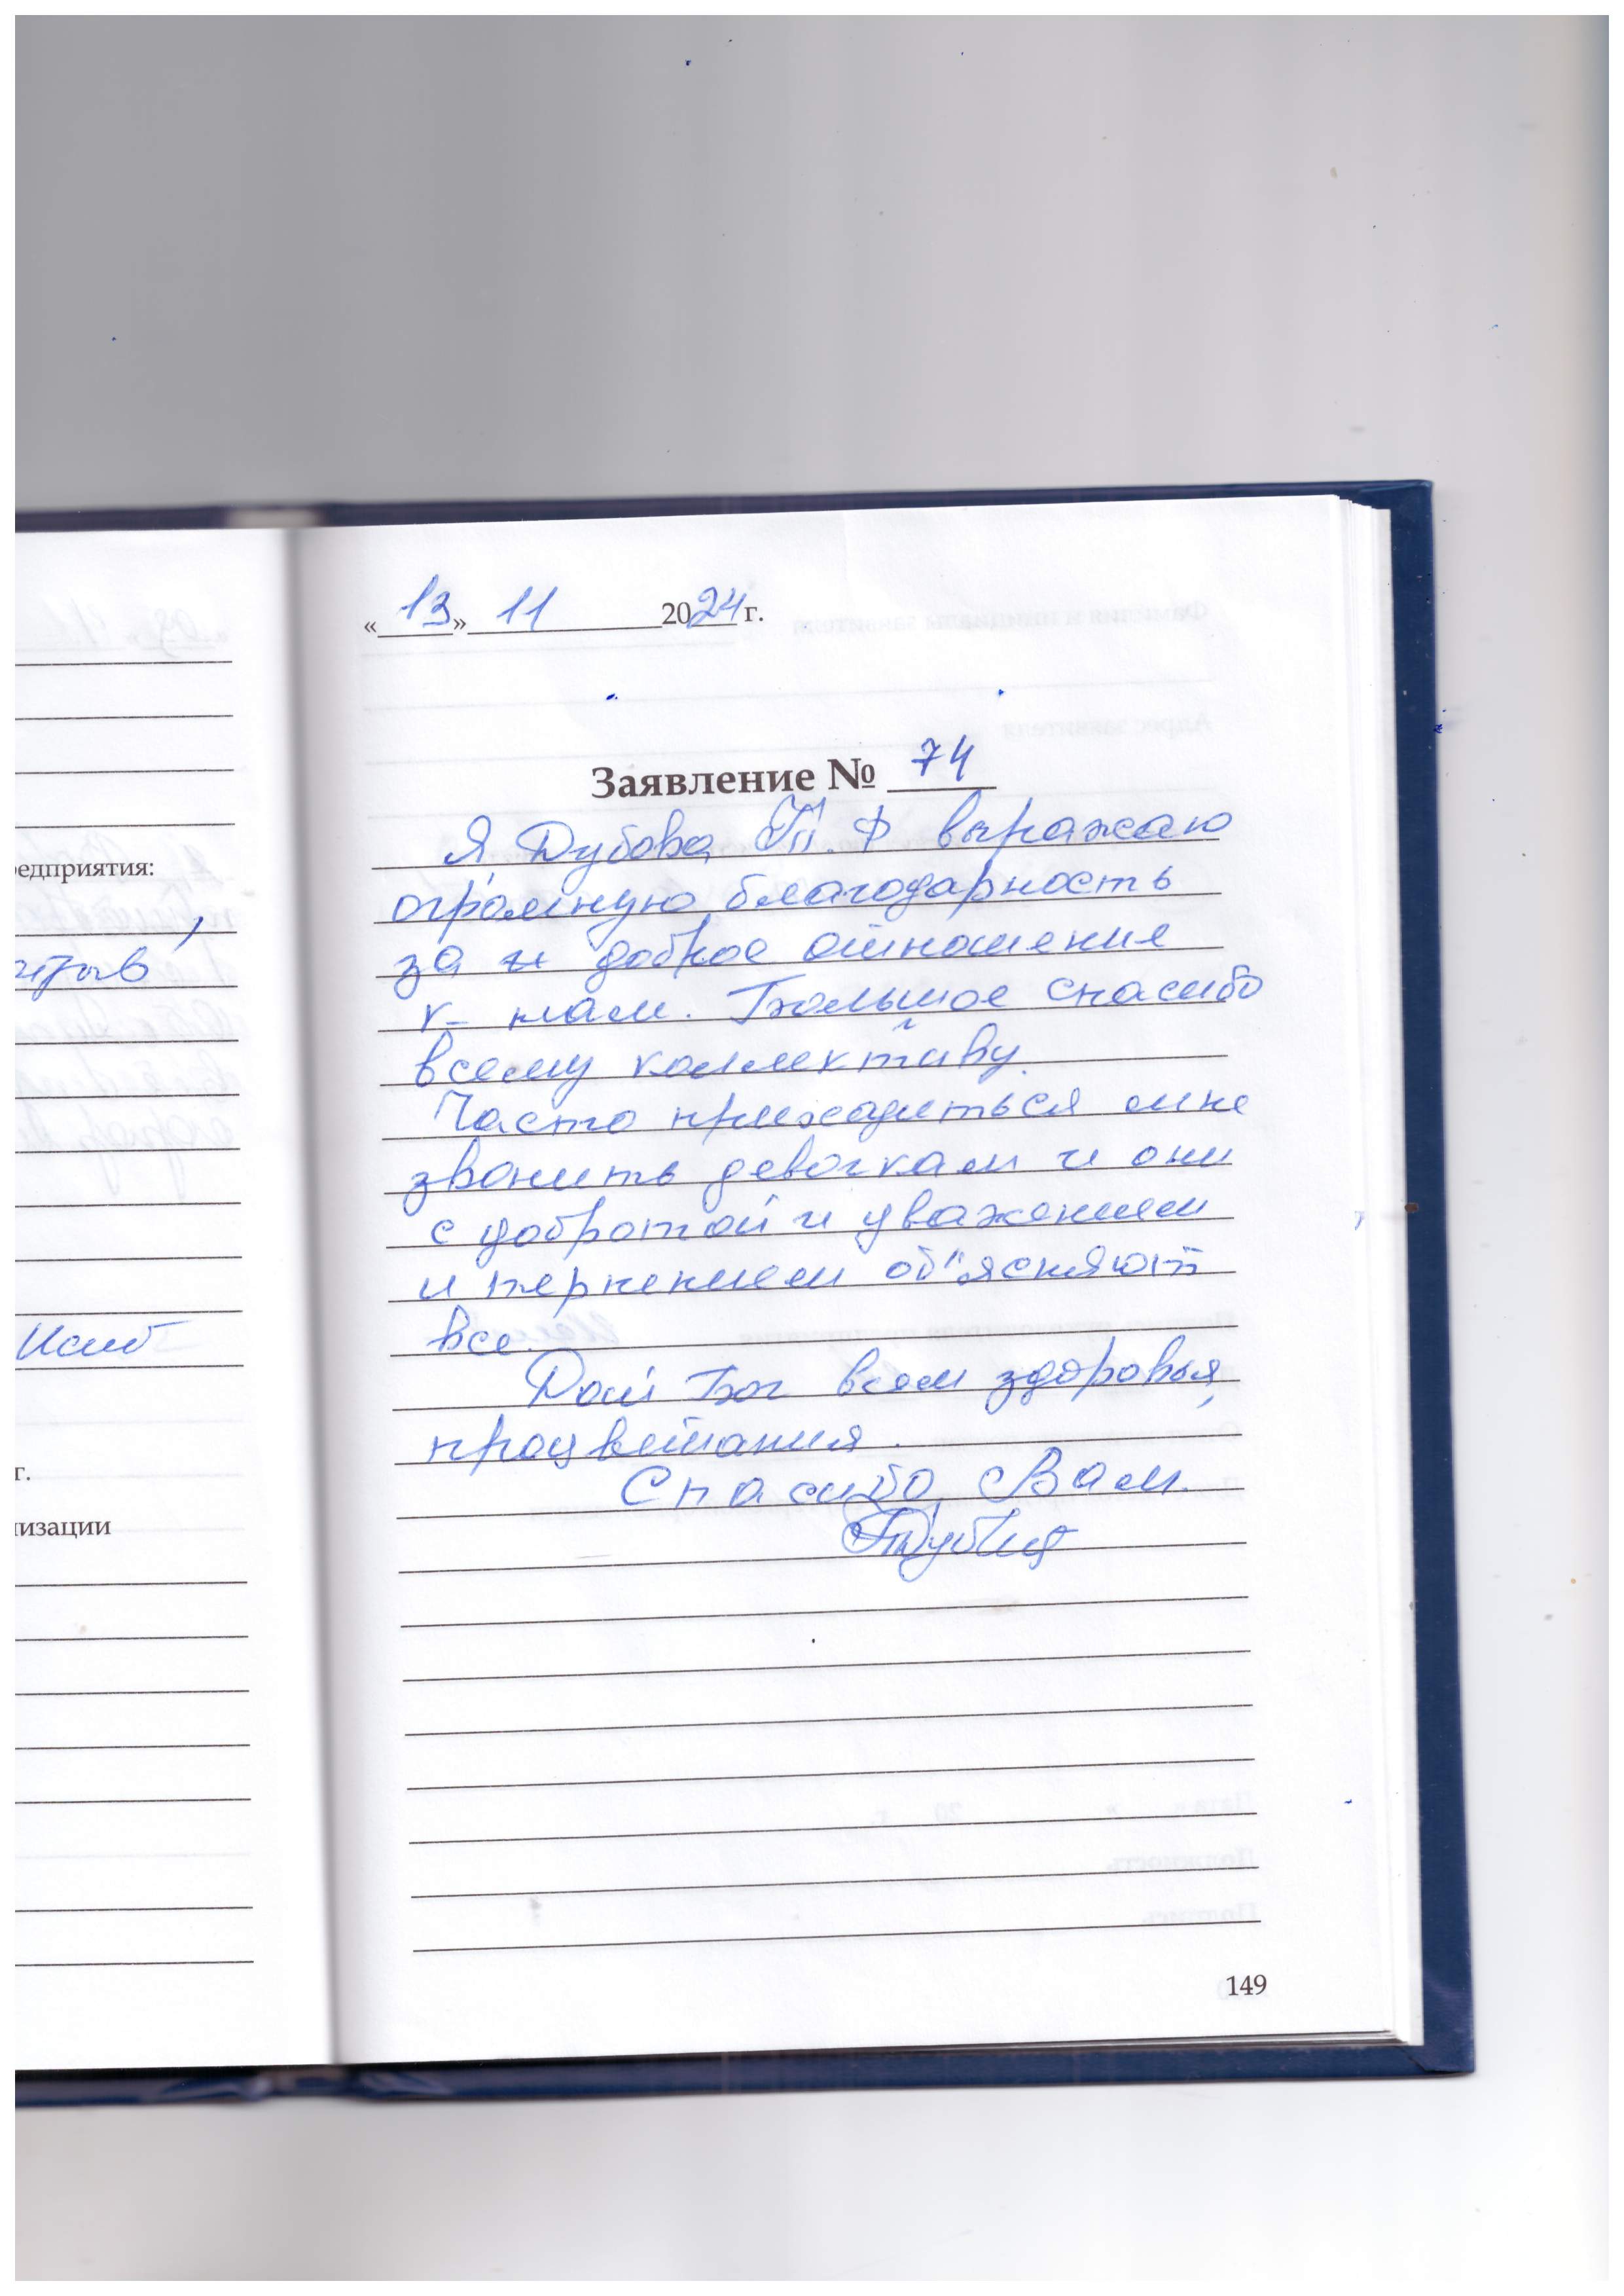 «13» 11 2024 г.
Заявление № 74
Я, Дубова Т. Ф выражаю
огромную благодарность
за и доброе отношение
к нам. Большое спасибо
всему коллективу.
Часто приходиться мне
звонить девочкам и они
с добротой и уважением
и терпением об"ясняют
все.
Дай Бог всем здоровья,
процветания.
Спасибо Вам.
149
едприятия:
г.
низации